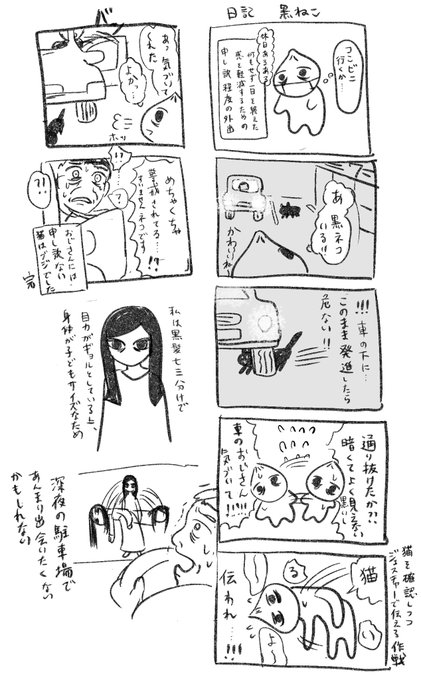 日記 黒ねこ
コンビニ
行くか…
休日あるある
何もせず一日を終えた
悲を軽減するための
申し訳程度の外出
あ
黒ネコ
いる!!
かわいいね
!!!車の下に…
このまま発進したら
危ない!!
通り抜けたか?!
暗くてよく見えない
黒いし
車のおじさん
気づいて!!
猫を確認しつつ
ジェスチャーで伝える作戦
猫
い
る
よ
伝われ…!!!
バ
あっ気づいて
くれた
よかった
ホッ
!!
?
めちゃくちゃ
警戒されてる…!!
すいませんネコです!?
?!!
おじさんには
申し訳ない
猫はブジでした
完
私は黒髪七三分けで
目力がギョルとしている上、
身体が子どもサイズなため
深夜の駐車場で
あんまり出会いたくない
かもしれない